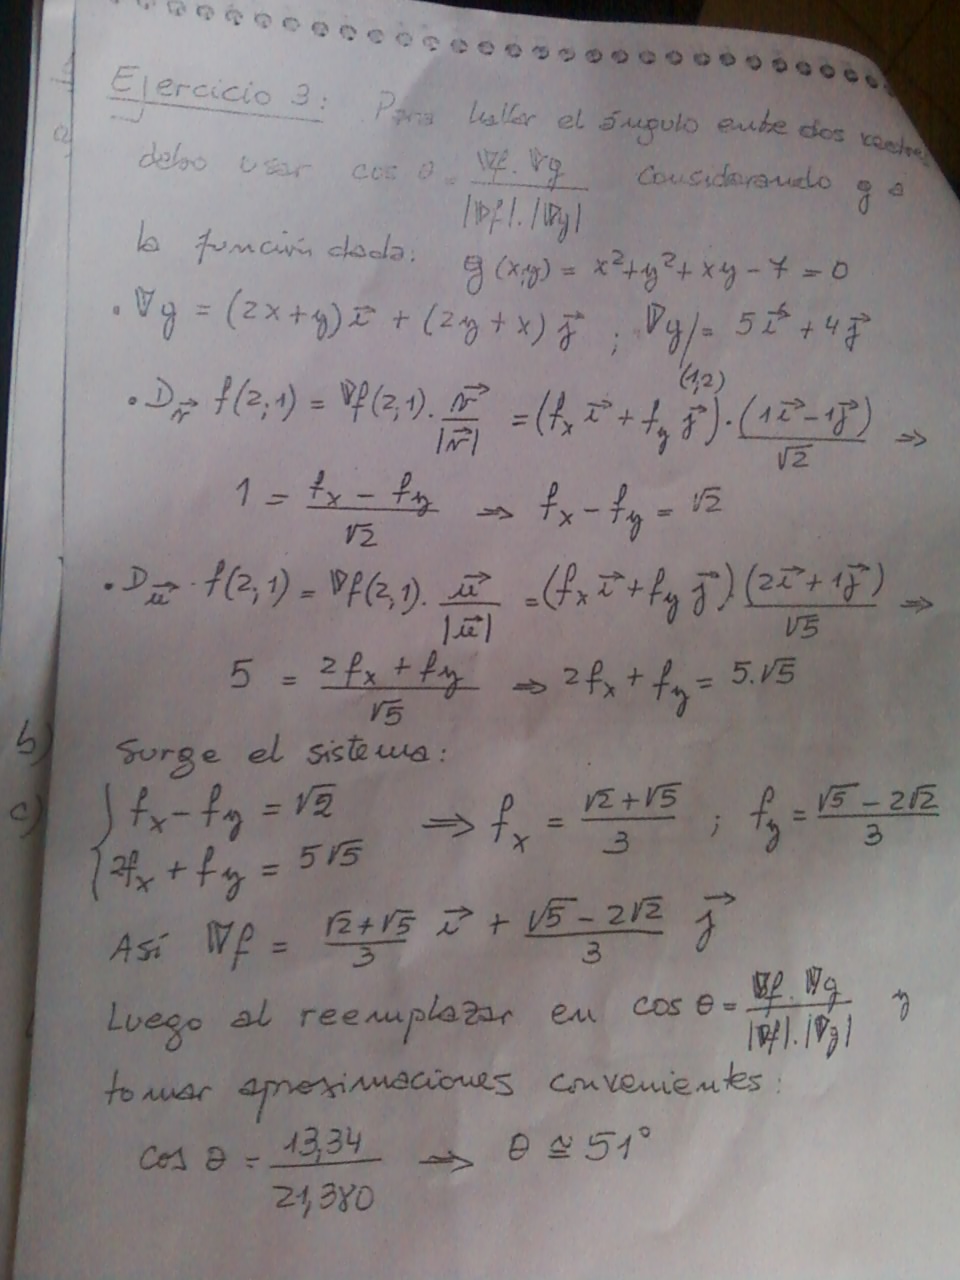 Ejercicio 3: Para hallar el ángulo entre dos vectores
debo usar cos θ = ∇f . ∇g / |∇f| . |∇g| considerando g a
la función dada: g(x,y) = x² + y² + xy - 7 = 0
• ∇g = (2x+y) i⃗ + (2y+x) j⃗ ; ∇g/(1,2) = 5 i⃗ + 4 j⃗
• D_v⃗ f(2,1) = ∇f(2,1) . v⃗/|v⃗| = (fx i⃗ + fy j⃗) . (1 i⃗ - 1 j⃗)/√2 ⇒
1 = (fx - fy)/√2 ⇒ fx - fy = √2
• D_u⃗ . f(2,1) = ∇f(2,1) . u⃗/|u⃗| = (fx i⃗ + fy j⃗) (2 i⃗ + 1 j⃗)/√5 ⇒
5 = (2fx + fy)/√5 ⇒ 2fx + fy = 5.√5
b)
Surge el sistema:
c)
{ fx - fy = √2 ⇒ fx = (√2 + √5)/3 ; fy = (√5 - 2√2)/3
2fx + fy = 5√5
Así ∇f = (√2 + √5)/3 i⃗ + (√5 - 2√2)/3 j⃗
Luego al reemplazar en cos θ = ∇f . ∇g / |∇f| . |∇g| y
tomar aproximaciones convenientes:
cos θ = 13,34/21,380 ⇒ θ ≅ 51°